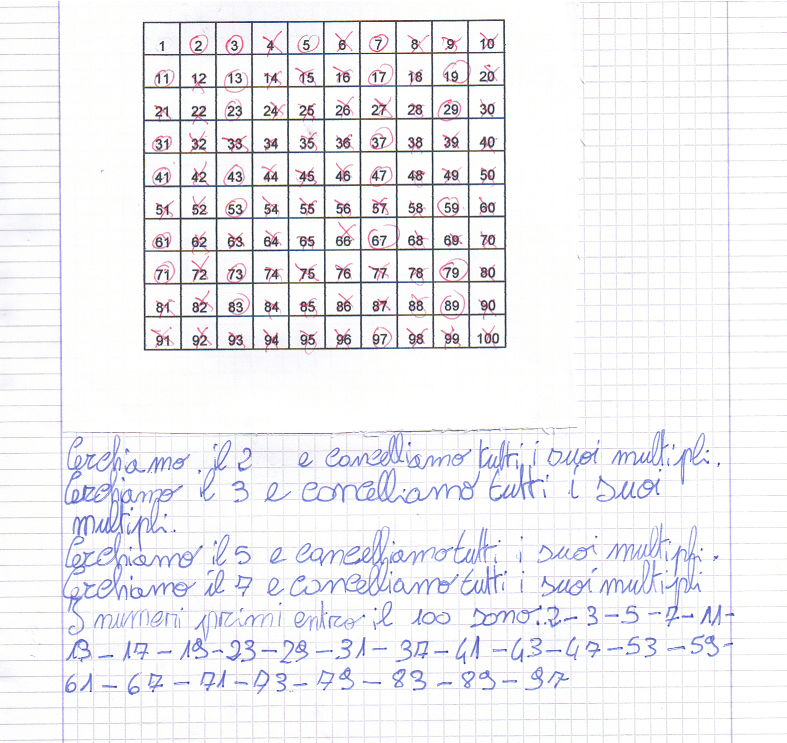 1 2 3 4 5 6 7 8 9 10
11 12 13 14 15 16 17 18 19 20
21 22 23 24 25 26 27 28 29 30
31 32 33 34 35 36 37 38 39 40
41 42 43 44 45 46 47 48 49 50
51 52 53 54 55 56 57 58 59 60
61 62 63 64 65 66 67 68 69 70
71 72 73 74 75 76 77 78 79 80
81 82 83 84 85 86 87 88 89 90
91 92 93 94 95 96 97 98 99 100
Cerchiamo il 2 e cancelliamo tutti i suoi multipli.
Cerchiamo il 3 e cancelliamo tutti i suoi
multipli.
Cerchiamo il 5 e cancelliamo tutti i suoi multipli.
Cerchiamo il 7 e cancelliamo tutti i suoi multipli
I numeri primi entro il 100 sono: 2 - 3 - 5 - 7 - 11 -
13 - 17 - 19 - 23 - 29 - 31 - 37 - 41 - 43 - 47 - 53 - 59 -
61 - 67 - 71 - 73 - 79 - 83 - 89 - 97